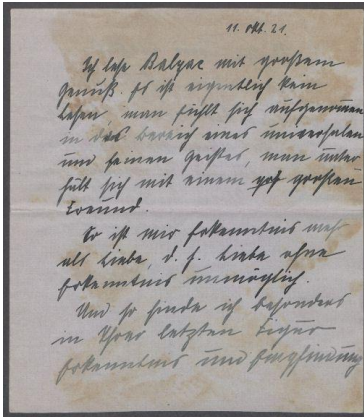 11. Okt. 21.
Ich lese Balzac mit großem
Genuß. Es ist eigentlich kein
Lesen, man fühlt sich aufgenommen
in das Bereich eines universalen
und feinen Geistes, man unter
hält sich mit einem großen
Freund.
So ist mir Erkenntnis mehr
als Liebe, d. h. Liebe ohne
Erkenntnis unmöglich.
Und so finde ich besonders
in Ihrer letzten Figur
Erkenntnis und Empfindung